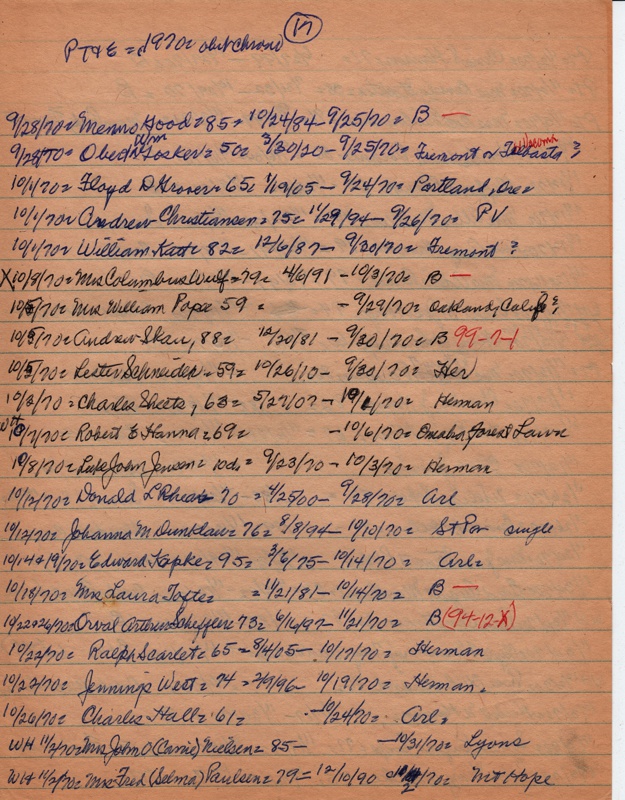 17
PT&E = 1970= obit chrono
9/28/70= Menno Hood=85= 10/24/84- 9/25/70= B —
9/28/70= Obed Wm = 50= 3/30/20- 9/25/70= Fremont or ?
10/1/70= Floyd D Grover= 65= 1/19/05- 9/24/70= Portland, Ore=
10/1/70= Andrew Christiansen= 75= 11/29/94- 9/26/70= PV
10/1/70= William Katt= 82= 12/6/87- 9/30/70= Fremont?
X10/8/70= Mrs Columbus Wulf=79= 4/6/91 -10/3/70= B —
10/5/70= Mrs William Pope 59 = - 9/29/70= Oakland, Calif ?
10/5/70= Andrew Skau, 88= 12/20/81 - 9/30/70= B 99-7-1
10/5/70= Lester Schneider= 59= 10/26/10- 9/30/70= Her
10/2/70= Charles Sheets, 63= 5/27/07- 10/1/70= Herman
WH 10/7/70= Robert E Hanna=69= -10/6/70= Omaha Forest Lawn
10/8/70= Luke John Jensen= 10ds= 9/23/70- 10/3/70= Herman
10/12/70= Donald L Rhea 70 = 4/25/00- 9/28/70= Arl
10/12/70= Johanna M Dunklau= 76= 8/8/94- 10/10/70= St Par single
10/14&19/70= Edward Kapke= 95= 3/6/75-10/14/70= Arl=
10/18/70= Mrs Laura Tofte= =11/21/81- 10/14/70= B —
10/22&26/70= Orval Arthur Scheffler= 73= 6/16/97- 11/21/70= B (94-12-X)
10/22/70= Ralph Scarlet= 65= 8/4/05- 10/17/70= Herman
10/22/70= Jennings West= 74 =2/9/96- 10/19/70= Herman=
10/26/70= Charles Hall= 61= -10/24/70= Arl=
WH 11/2/70= Mrs John O (Carrie) Nielsen= 85- -10/31/70= Lyons
WH 11/2/70= Mrs Fred (Selma) Paulsen= 79= 12/10/90 /70= Mt Hope